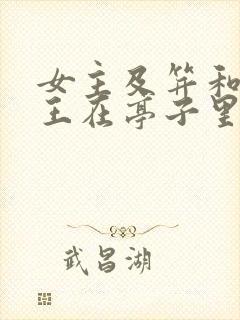 女主及笄和
王在亭子里
武昌湖